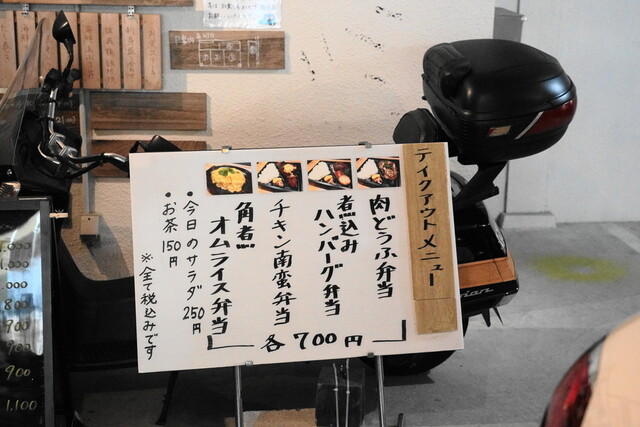 テイクアウトメニュー
肉どうふ弁当
煮込み
ハンバーグ弁当
チキン南蛮弁当
角煮
オムライス弁当
各700円
・今日のサラダ 250円
・お茶 150円
※全て税込みです
800
900
900
1,100